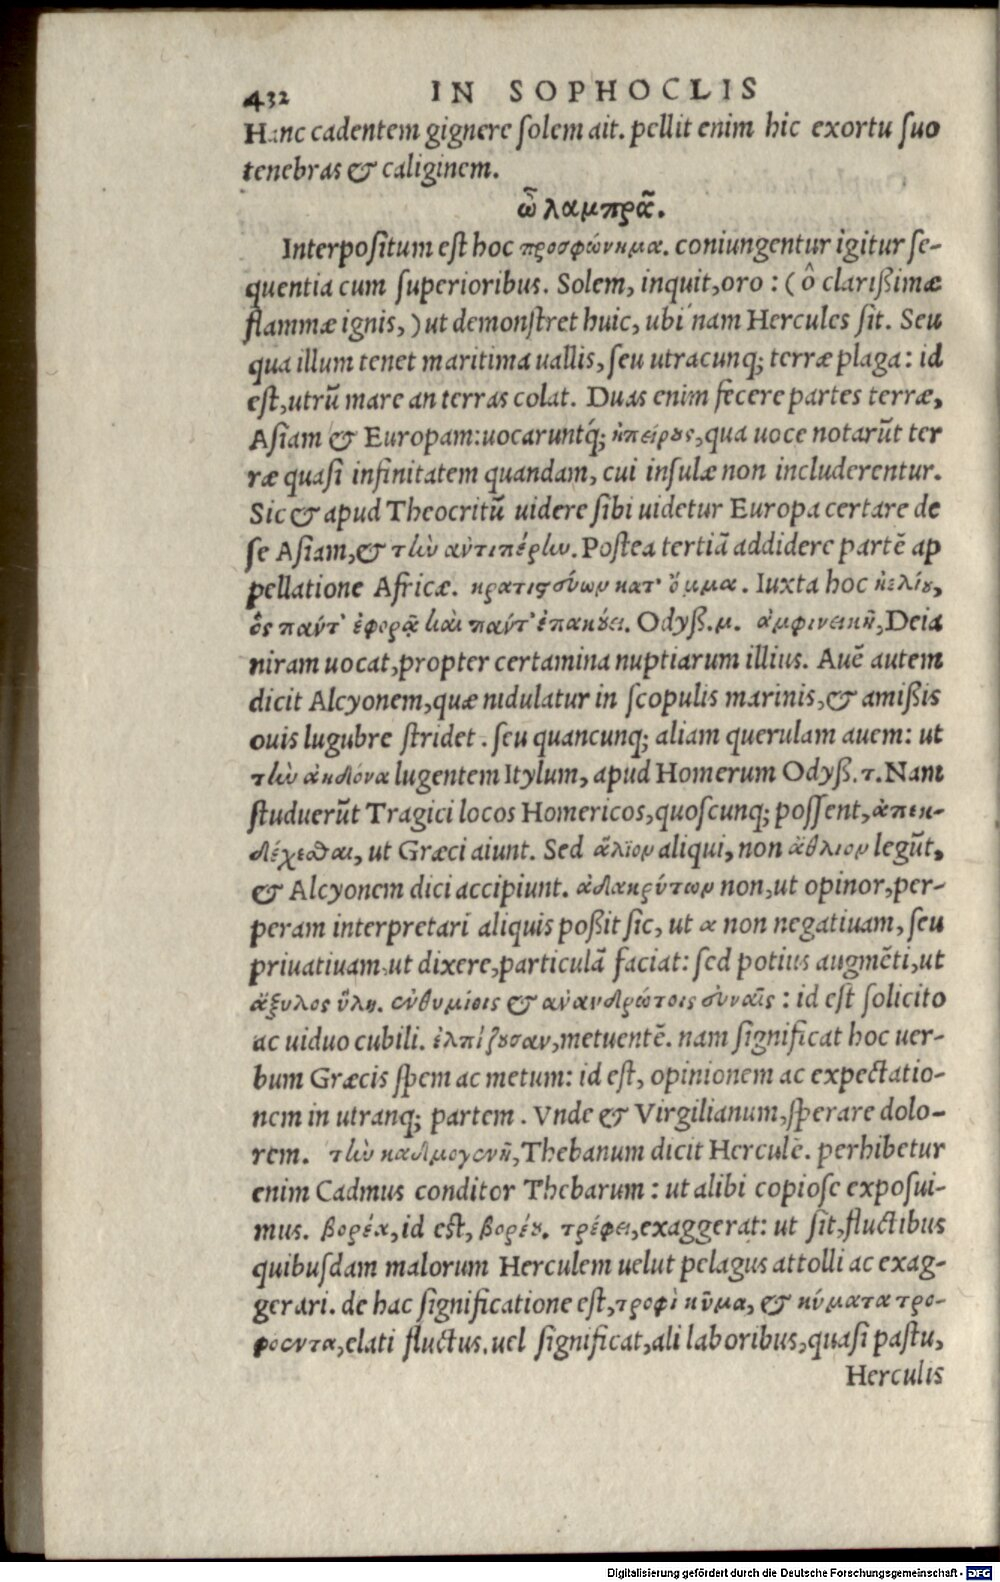 432 IN SOPHOCLIS
Hanc cadentem gignere ſolem ait. pellit enim hic exortu ſuo
tenebras & caliginem.
ὦ λαμπρᾶ.
Interpoſitum eſt hoc προσφώνημα. coniungentur igitur ſe-
quentia cum ſuperioribus. Solem, inquit, oro : (ô clarißimæ
flammæ ignis,) ut demonſtret huic, ubi nam Hercules ſit. Seu
qua illum tenet maritima uallis, ſeu utracunq; terræ plaga: id
eſt, utrū mare an terras colat. Duas enim fecere partes terræ,
Aſiam & Europam: uocaruntq́; ἠπείρους, qua uoce notarūt ter
ræ quaſi infinitatem quandam, cui inſulæ non includerentur.
Sic & apud Theocritū uidere ſibi uidetur Europa certare de
ſe Aſiam, & τὼ ἀντιπέρlω. Poſtea tertiā addidere partē ap
pellatione Africæ. κρατιστεύων κατ' ὄμμα. Iuxta hoc ἠελίου,
ὃς πάντ' ἐφορᾷ καὶ πάντ' ἐπακούει. Odyß. μ. ἀμφινεικῆ, Deia
niram uocat, propter certamina nuptiarum illius. Auē autem
dicit Alcyonem, quæ nidulatur in ſcopulis marinis, & amißis
ouis lugubre ſtridet. ſeu quancunq; aliam querulam auem: ut
τὼ ἀηδόνα lugentem Itylum, apud Homerum Odyß. τ. Nam
ſtuduerūt Tragici locos Homericos, quoſcunq; poſſent, ἀπεκ-
δέχεσθαι, ut Græci aiunt. Sed ἄλιον aliqui, non ἄθλιον legūt,
& Alcyonem dici accipiunt. ἀδακρύτων non, ut opinor, per-
peram interpretari aliquis poßit ſic, ut α non negatiuam, ſeu
priuatiuam, ut dixere, particulā faciat: ſed potius augmēti, ut
ἄξυλος ὕλη. ἐνθυμίοις & ἀνανδρώτοις εὐναῖς : id eſt ſolicito
ac uiduo cubili. ἐλπίζουσαν, metuentē. nam ſignificat hoc uer-
bum Græcis ſpem ac metum: id eſt, opinionem ac expectatio-
nem in utranq; partem. Vnde & Virgilianum, ſperare dolo-
rem. τὼ καδμογενῆ, Thebanum dicit Herculē. perhibetur
enim Cadmus conditor Thebarum : ut alibi copioſe expoſui-
mus. βορέα, id eſt, βορέου. τρέφει, exaggerat: ut ſit, fluctibus
quibuſdam malorum Herculem uelut pelagus attolli ac exag-
gerari. de hac ſignificatione eſt, τροφὶ κῦμα, & κύματα τρο-
φόεντα, elati fluctus. uel ſignificat, ali laboribus, quaſi paſtu,
Herculis
Digitalisierung gefördert durch die Deutsche Forschungsgemeinschaft - DFG